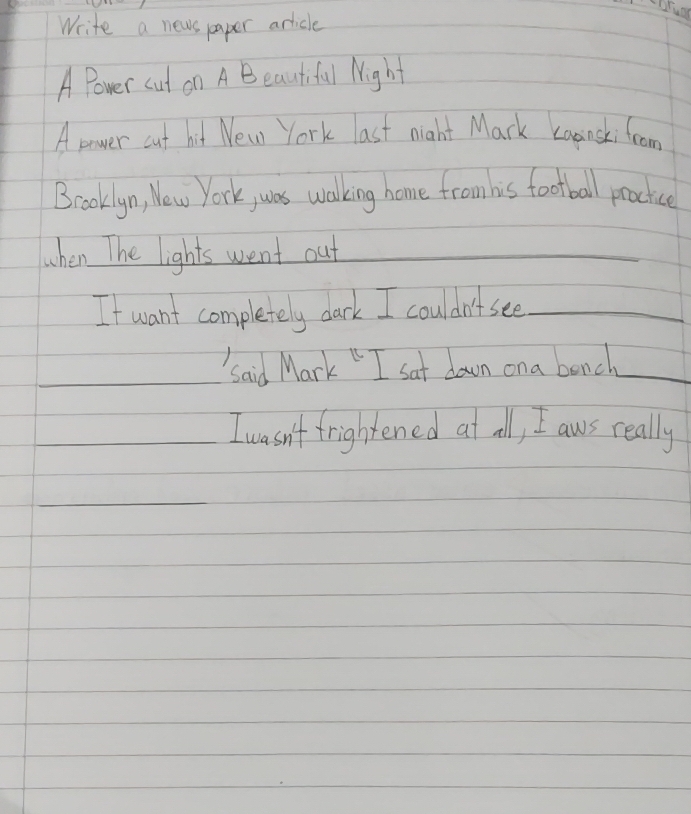 Write a news paper article
A Power cut on A Beautiful Night
A power cut hit New York last night Mark Kapinski from
Brooklyn, New York, was walking home from his football practice
when The lights went out
It want completely dark I couldn't see
'said Mark "I sat down on a bench
I wasn't frightened at all, I aws really